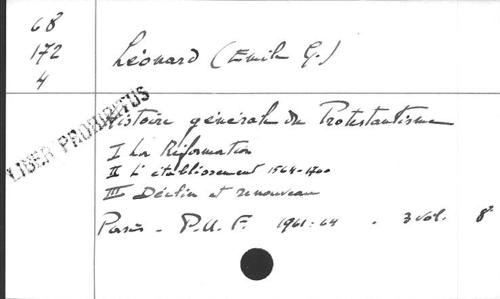 68
172
4
Léonard (Emile G.)
LIBER PROHIBITUS
Histoire générale du Protestantisme
I La Réformation
II L'établissement 1564-1700
III Déclin et renouveau
Paris - P.U.F. 1961-64 . 3 vol. 8°